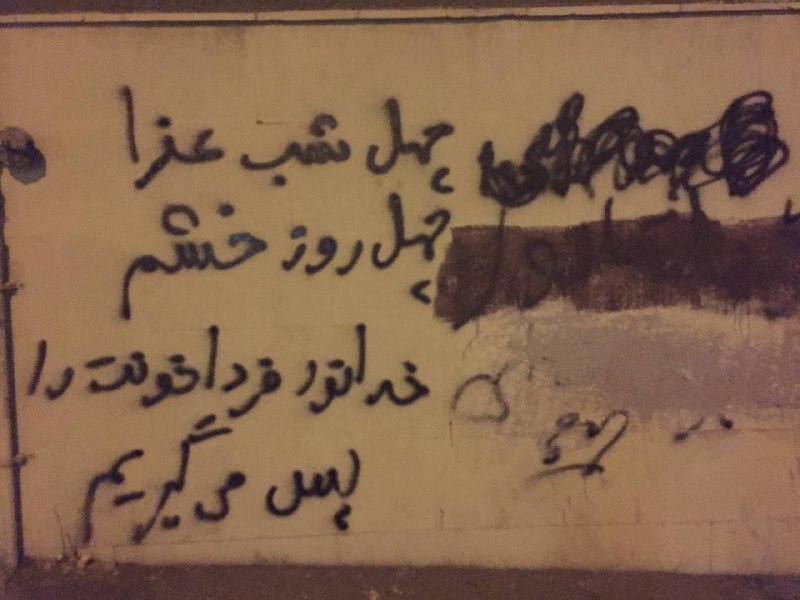 چهل شب عزا
چهل روز خشم
خدانور فردا خونت را
پس می گیریم